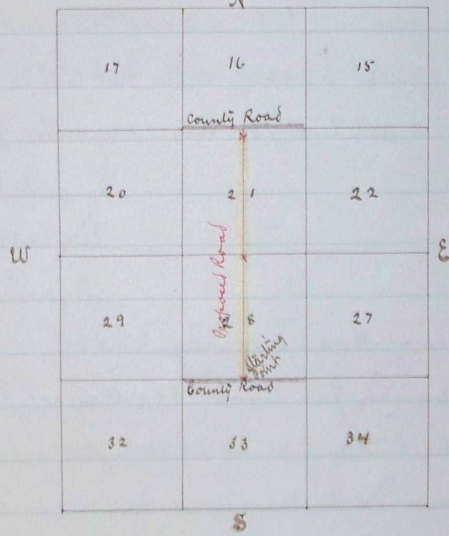 N
17 16 15
County Road
20 21 22
W E
Proposed Road
29 8 27
Starting Point
County Road
32 33 34
S